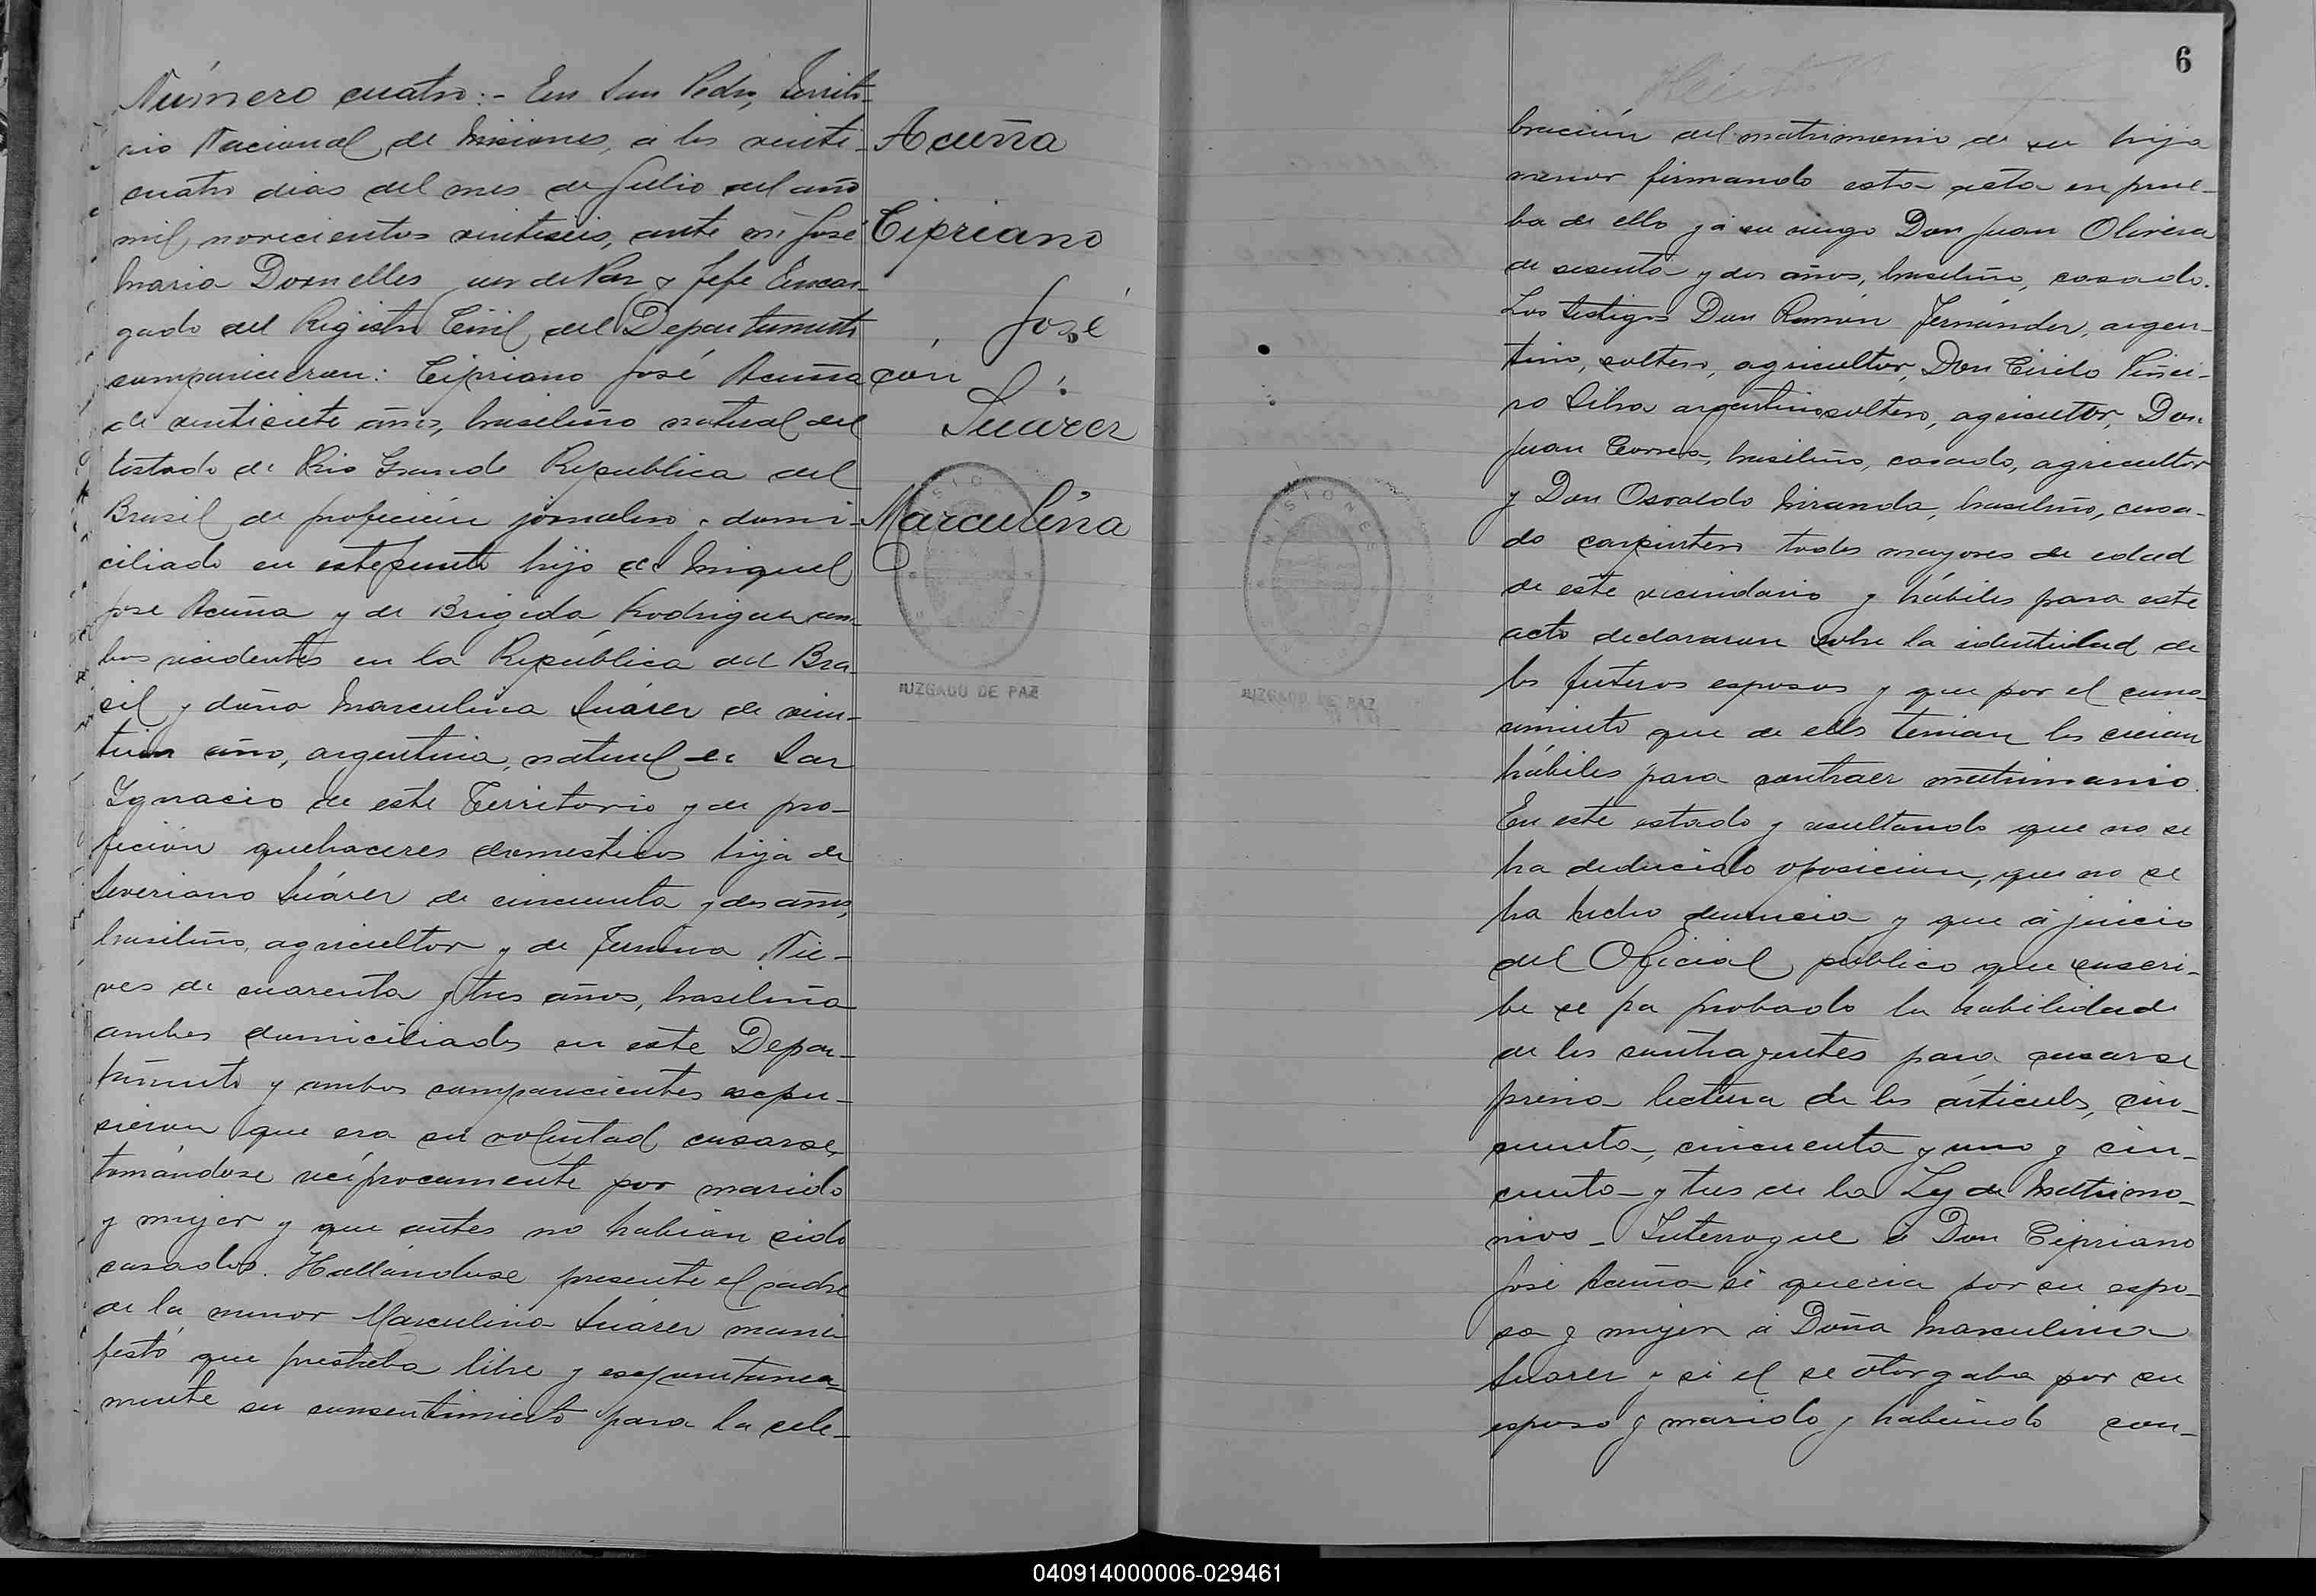 Número cuatro:- En San Pedro, Territo-
rio Nacional de Misiones, a los veinti-
cuatro dias del mes de Julio del año
mil novecientos veintiseis, ante mi José
Maria Dornelles Juez de Paz y Jefe Encar-
gado del Registro Civil del Departamento
comparecieron: Cipriano José Acuña
de veintisiete años, brasileño natural del
Estado de Rio Grande Republica del
Brasil de profeción jornalero, domi-
ciliado en este punto hijo de Miguel
José Acuña y de Brigida Rodriguez am-
bos residentes en la República del Bra-
sil y doña Marculina Suárez de vein-
tiun año, argentina, natural de San
Ygnacio de este Territorio y de pro-
feción quehaceres domesticos hija de
Severiano Suárez de cincuenta y dos años,
brasileño, agricultor y de Nie-
ves de cuarenta y tres años, brasileña
ambos domiciliados en este Depar-
tamento y ambos comparecientes expu-
sieron que era su voluntad casarse,
tomándose recíprocamente por marido
y mujer y que antes no habian sido
casados. Hallándose presente el padre
de la menor Marculina Suárez mani-
festó que prestaba libre y espontanea-
mente su consentimiento para la cele-
Acuña
Cipriano
José
con
Suarez
Marculina
MISIONES
JUZGADO DE PAZ
MISIONES
JUZGADO DE PAZ
6
bración del matrimonio de su hija
menor firmando esta acta en prue-
ba de ello y á su ruego Don Juan Olivera
de sesenta y dos años, brasileño, casado.
Los testigos Don Ramón Fernández, argen-
tino, soltero, agricultor, Don Cirilo Piñei-
ro Silva argentino soltero, agricultor, Don
Juan Correa, brasileño, casado, agricultor
y Don Osvaldo Miranda, brasileño, casa-
do carpintero todos mayores de edad
de este vecindario y hábiles para este
acto declararon sobre la identidad de
los futuros esposos y que por el cono-
cimiento que de ellos tenian los creian
hábiles para contraer matrimonio.
En este estado y resultando que no se
ha deducido oposicion, que no se
ha hecho denuncia y que á juicio
del Oficial publico que suscri-
be se ha probado la habilidad
de los contrayentes para casarse
previa lectura de los árticulos, cin-
cuenta, cincuenta y uno y cin-
cuenta y tres de la Ley de Matrimo-
nios - Interrogue á Don Cipriano
José Acuña si queria por su espo-
sa y mujer á Doña Marculina
Suarez y si el se otorgaba por su
esposo y marido y habiendo con-
040914000006-029461